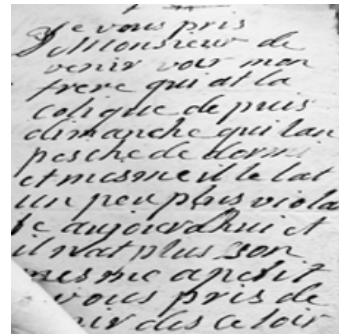 Je vous pris
Monsieur de
venir voir mon
frere qui at la
colique de puis
dimanche qui lan
pesche de dormi
et mesme il le lat
un peu plus viola
aujourdhui et
il nat plus son
mesme apetit
vous pris de
nir des ce soir